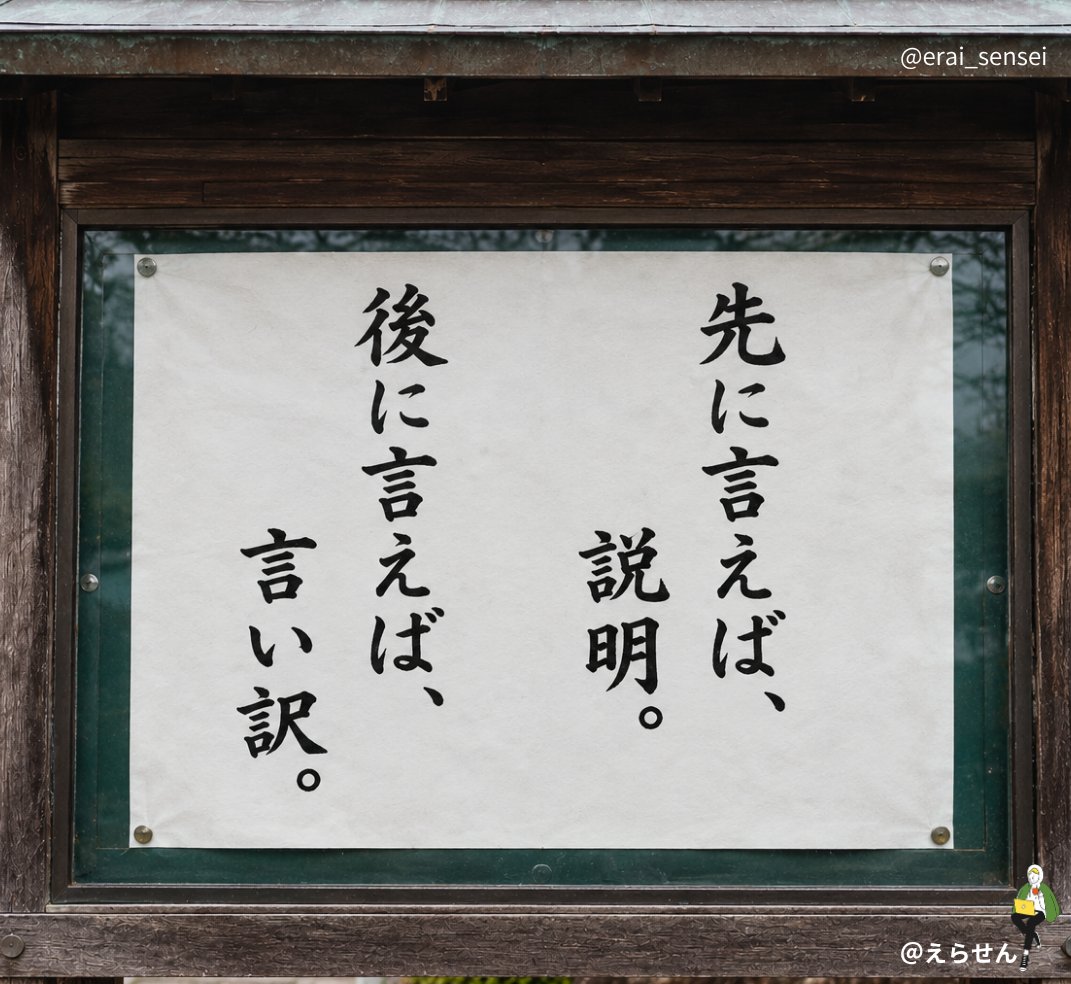 @erai_sensei
先に言えば、
説明。
後に言えば、
言い訳。
@えらせん